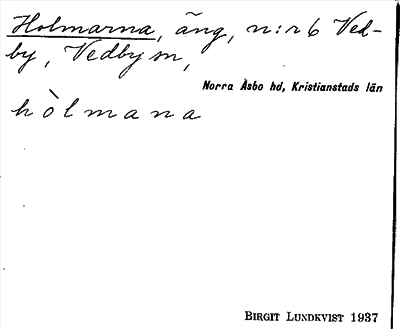 Holmarna, äng, n:r 6 Ved-
by, Vedby sn,
Norra Åsbo hd, Kristianstads län
hòlmana
BIRGIT LUNDKVIST 1937